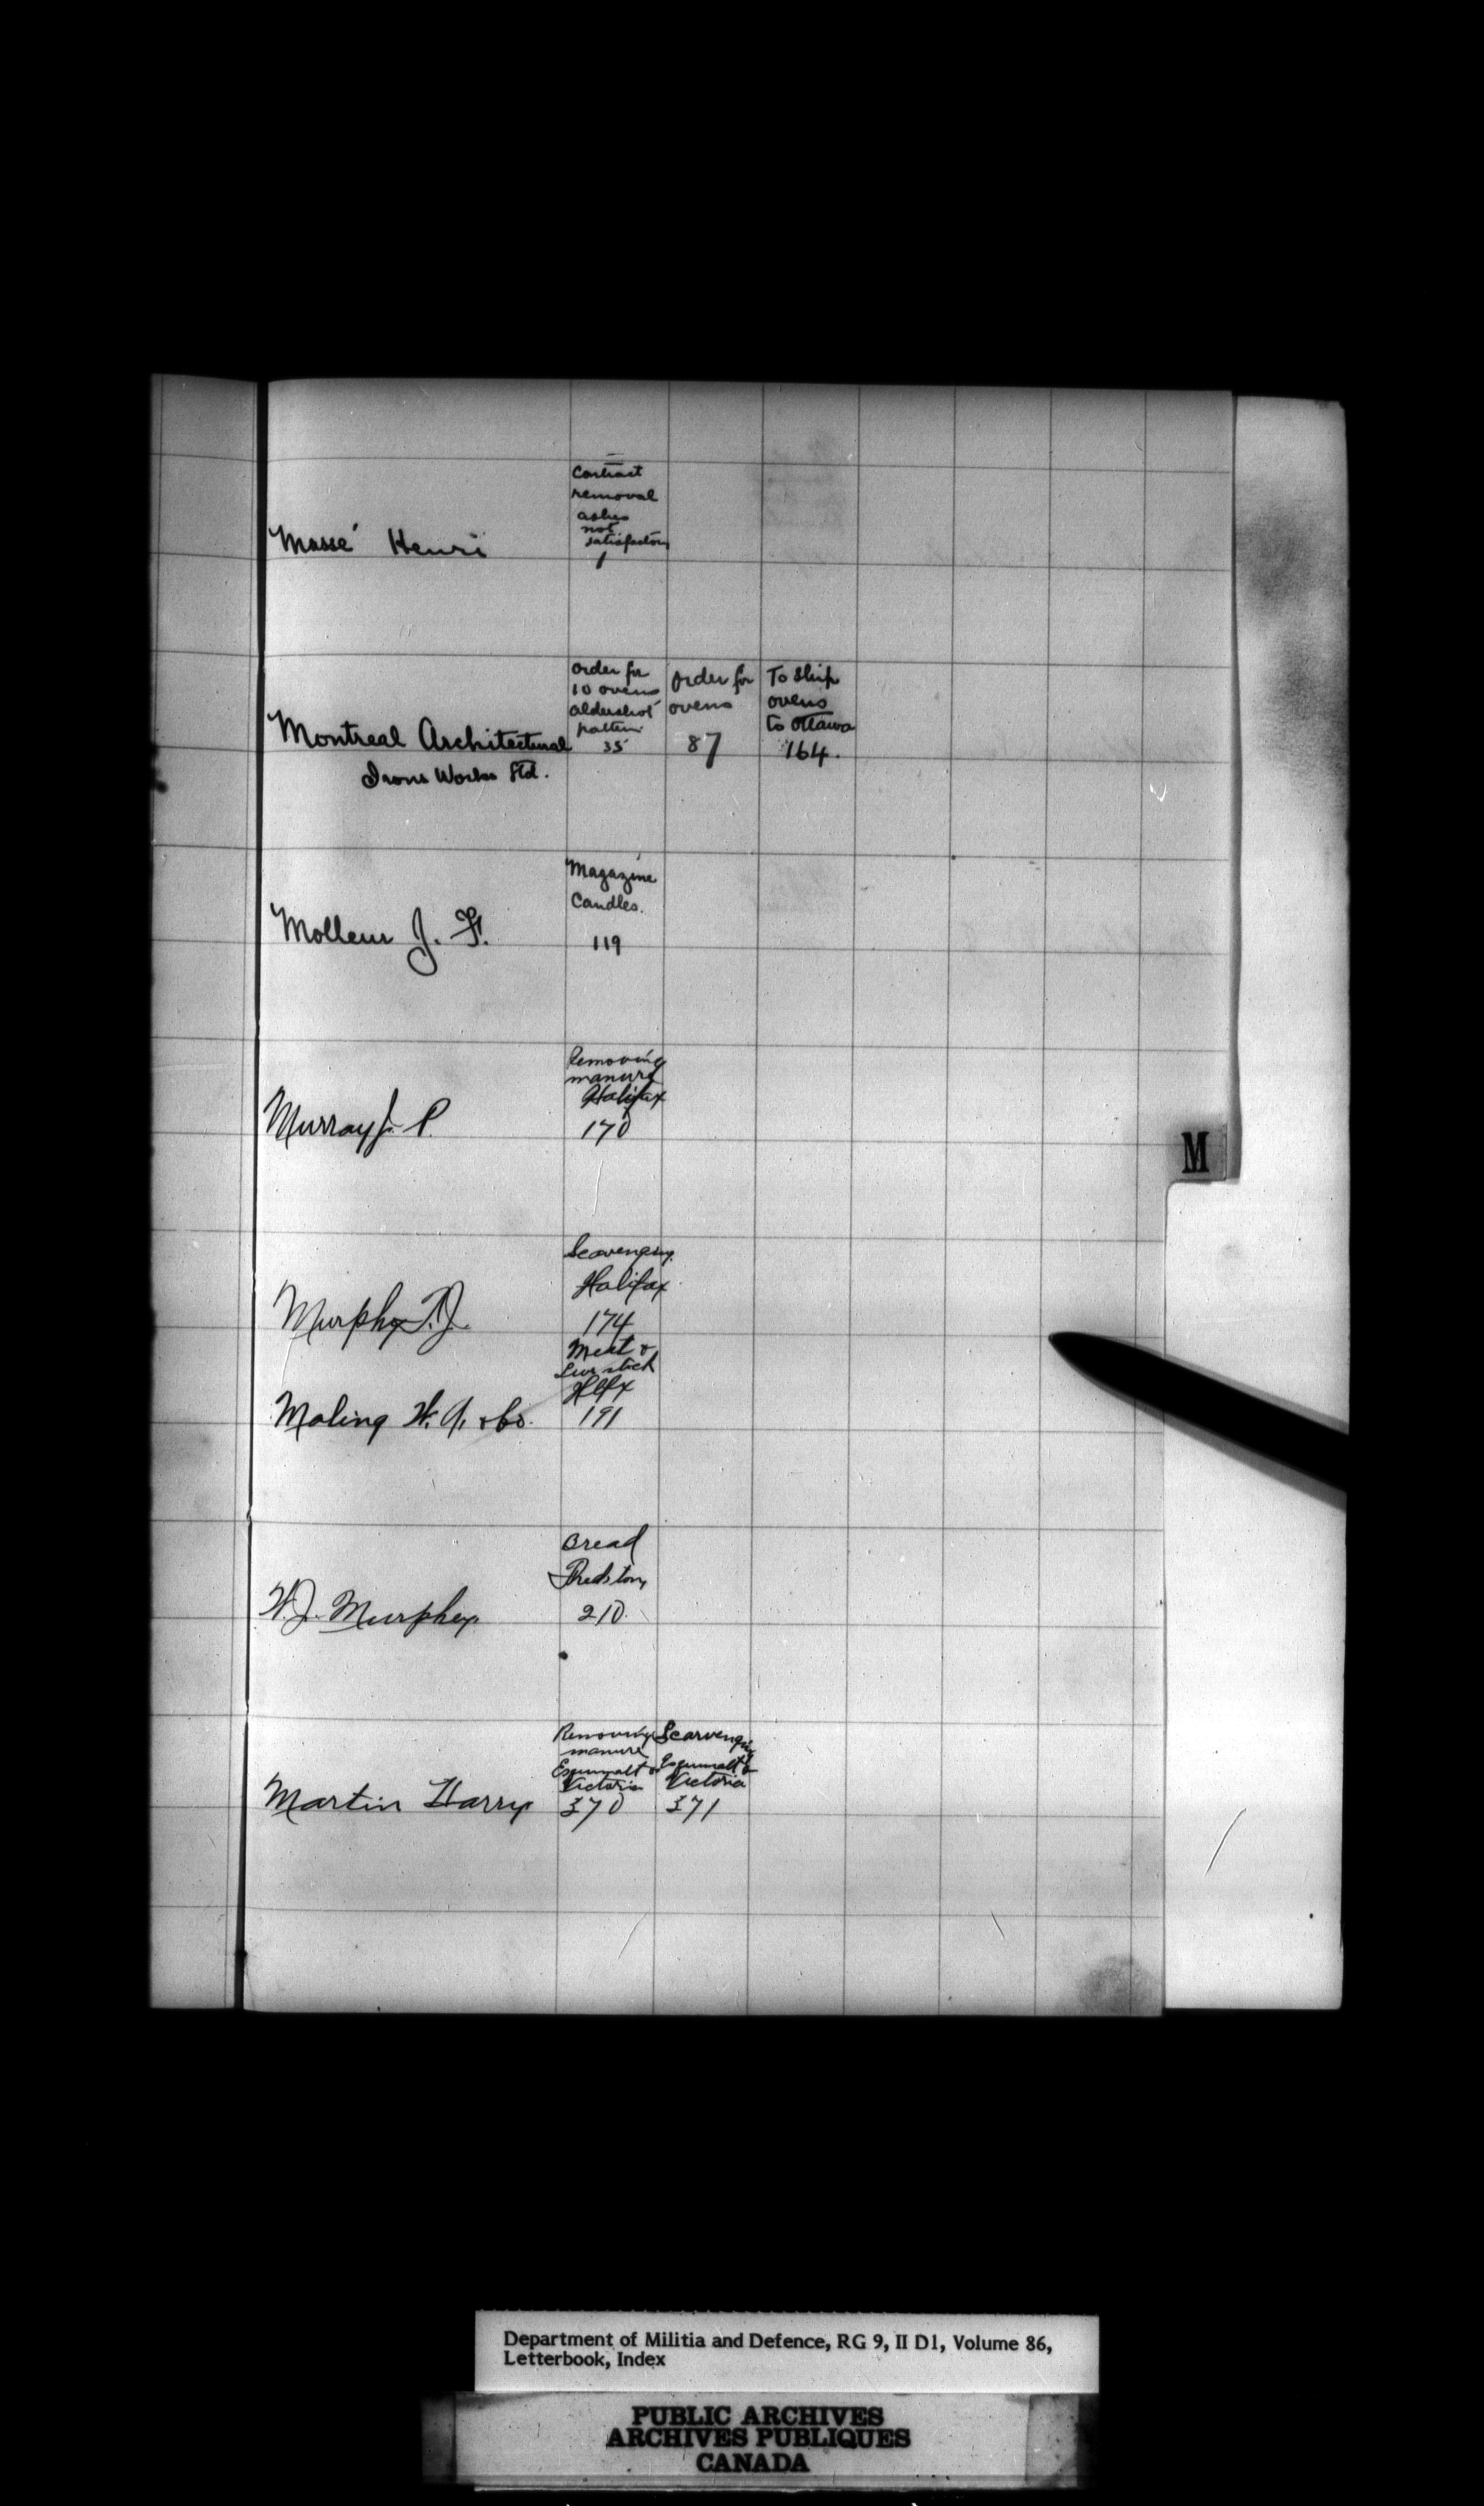 Contract
removal
ashes
not
satisfactory
Massé Henri
1
order for
10 ovens
aldershot
pattern
35
order for
ovens
87
To Ship
ovens
to Ottawa
164.
Montreal Architectural
Irons Works Ltd.
Magazine
Candles.
Molleur J. F.
119
Removing
manure
Halifax
Murray J. P.
170
Scavenging
Halifax
Murphy T. J.
174
Meat &
Live stock
Hlfx
Moling W. A. & Co.
191
Bread
Fredston
W. J. Murphy
210
Removing
manure
Esquimalt &
Victoria
370
Scarvenging
Esquimalt &
Victoria
371
Martin Harry
M
Department of Militia and Defence, RG 9, II D1, Volume 86,
Letterbook, Index
PUBLIC ARCHIVES
ARCHIVES PUBLIQUES
CANADA